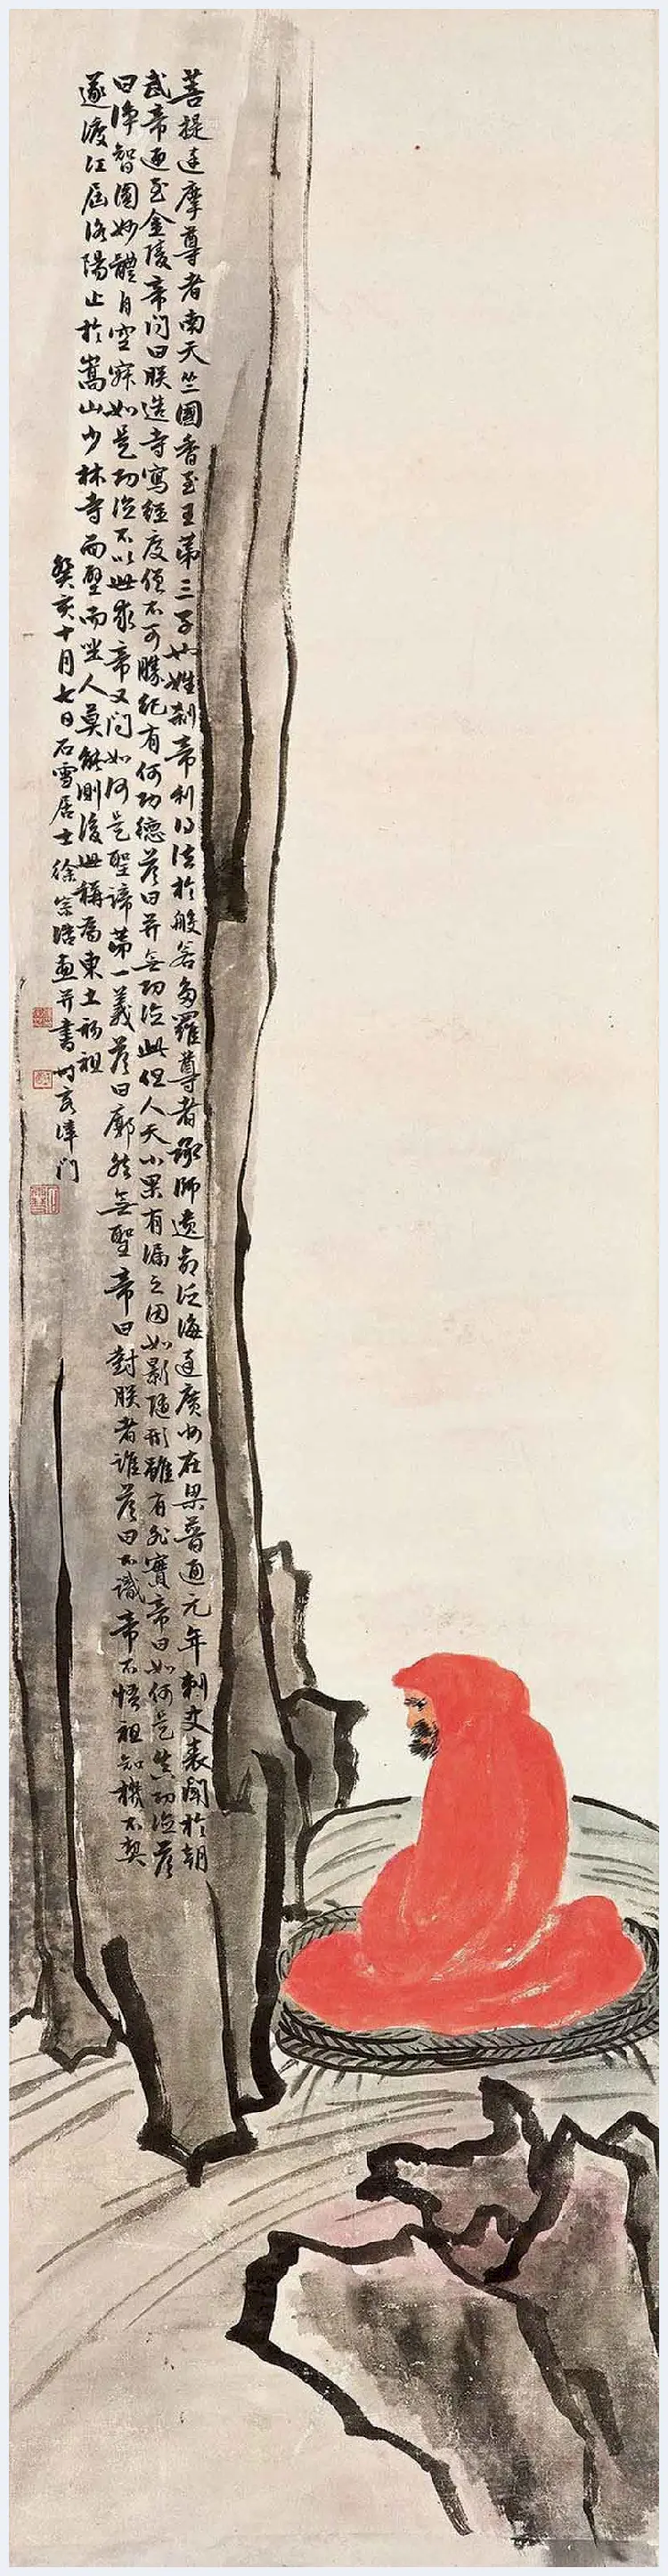 菩提達摩尊者南天竺國香至王第三子也姓剎帝利得法於般若多羅尊者承師遺命泛海達廣州在梁普通元年刺史表聞於朝
武帝迎至金陵帝問曰朕造寺寫經度僧不可勝紀有何功德答曰并無功德此但人天小果有漏之因如影隨形雖有非實帝曰如何是真功德答
曰淨智圓妙體自空寂如是功德不以世求帝又問如何是聖諦第一義答曰廓然無聖帝曰對朕者誰答曰不識帝不悟祖知機不契
遂渡江屆洛陽止於嵩山少林寺面壁而坐人莫能測後世稱為東土初祖
癸亥十月七日石雪居士徐宗浩畫并書時客津門